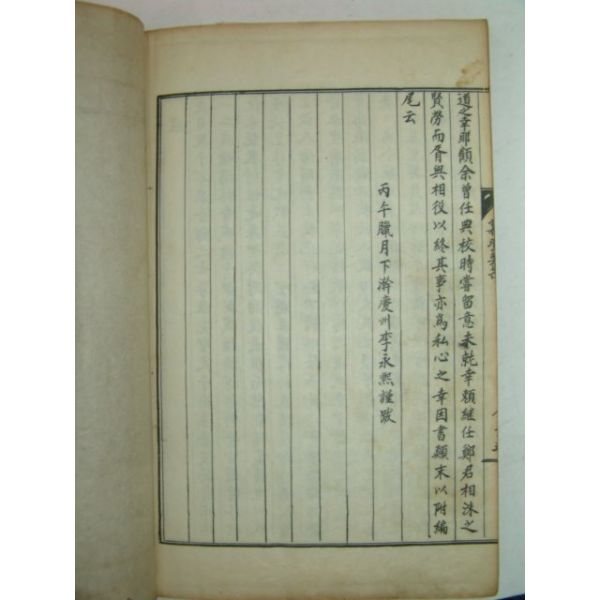 道之幸耶顧余曾任典校時嘗留意未就幸賴繼任鄭君相洙之
賢勞而胥與相役以終其事亦爲私心之幸因書顚末以附編
尾云
丙午臘月下澣慶州李永熙謹跋